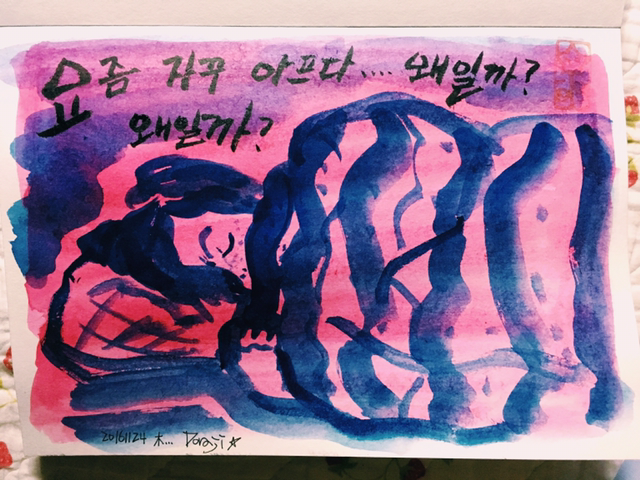 요즘 자꾸 아프다.... 왜일까?
왜일까?
20161124 木... Doraji☆